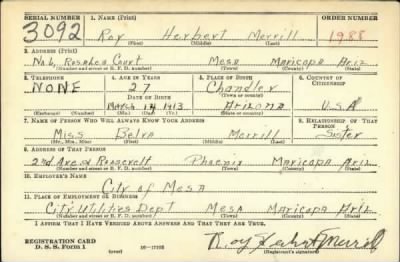 SERIAL NUMBER 1. NAME (Print) ORDER NUMBER
3092 Roy Herbert Merrill 1988
(First) (Middle) (Last)
2. ADDRESS (Print)
No 6, Rosalea Court Mesa Maricopa Ariz
(Number and street or R. F. D. number) (Town) (County) (State)
3. TELEPHONE 4. AGE IN YEARS 5. PLACE OF BIRTH 6. COUNTRY OF CITIZENSHIP
NONE 27 Chandler
DATE OF BIRTH (Town or county)
March 14 1913 Arizona U.S.A
(Exchange) (Number) (Mo.) (Day) (Yr.) (State or country)
7. NAME OF PERSON WHO WILL ALWAYS KNOW YOUR ADDRESS 8. RELATIONSHIP OF THAT PERSON
Miss Belva Merrill Sister
(Mr., Mrs., Miss) (First) (Middle) (Last)
9. ADDRESS OF THAT PERSON
2nd Ave & Roosevelt Phoenix Maricopa Ariz
(Number and street or R. F. D. number) (Town) (County) (State)
10. EMPLOYER'S NAME
City of Mesa
11. PLACE OF EMPLOYMENT OR BUSINESS
City Utilities Dept Mesa Maricopa Ariz
(Number and street or R. F. D. number) (Town) (County) (State)
I AFFIRM THAT I HAVE VERIFIED ABOVE ANSWERS AND THAT THEY ARE TRUE.
REGISTRATION CARD
D. S. S. Form 1 (over) 16-17105
Roy Herbert Merrill
(Registrant's signature)